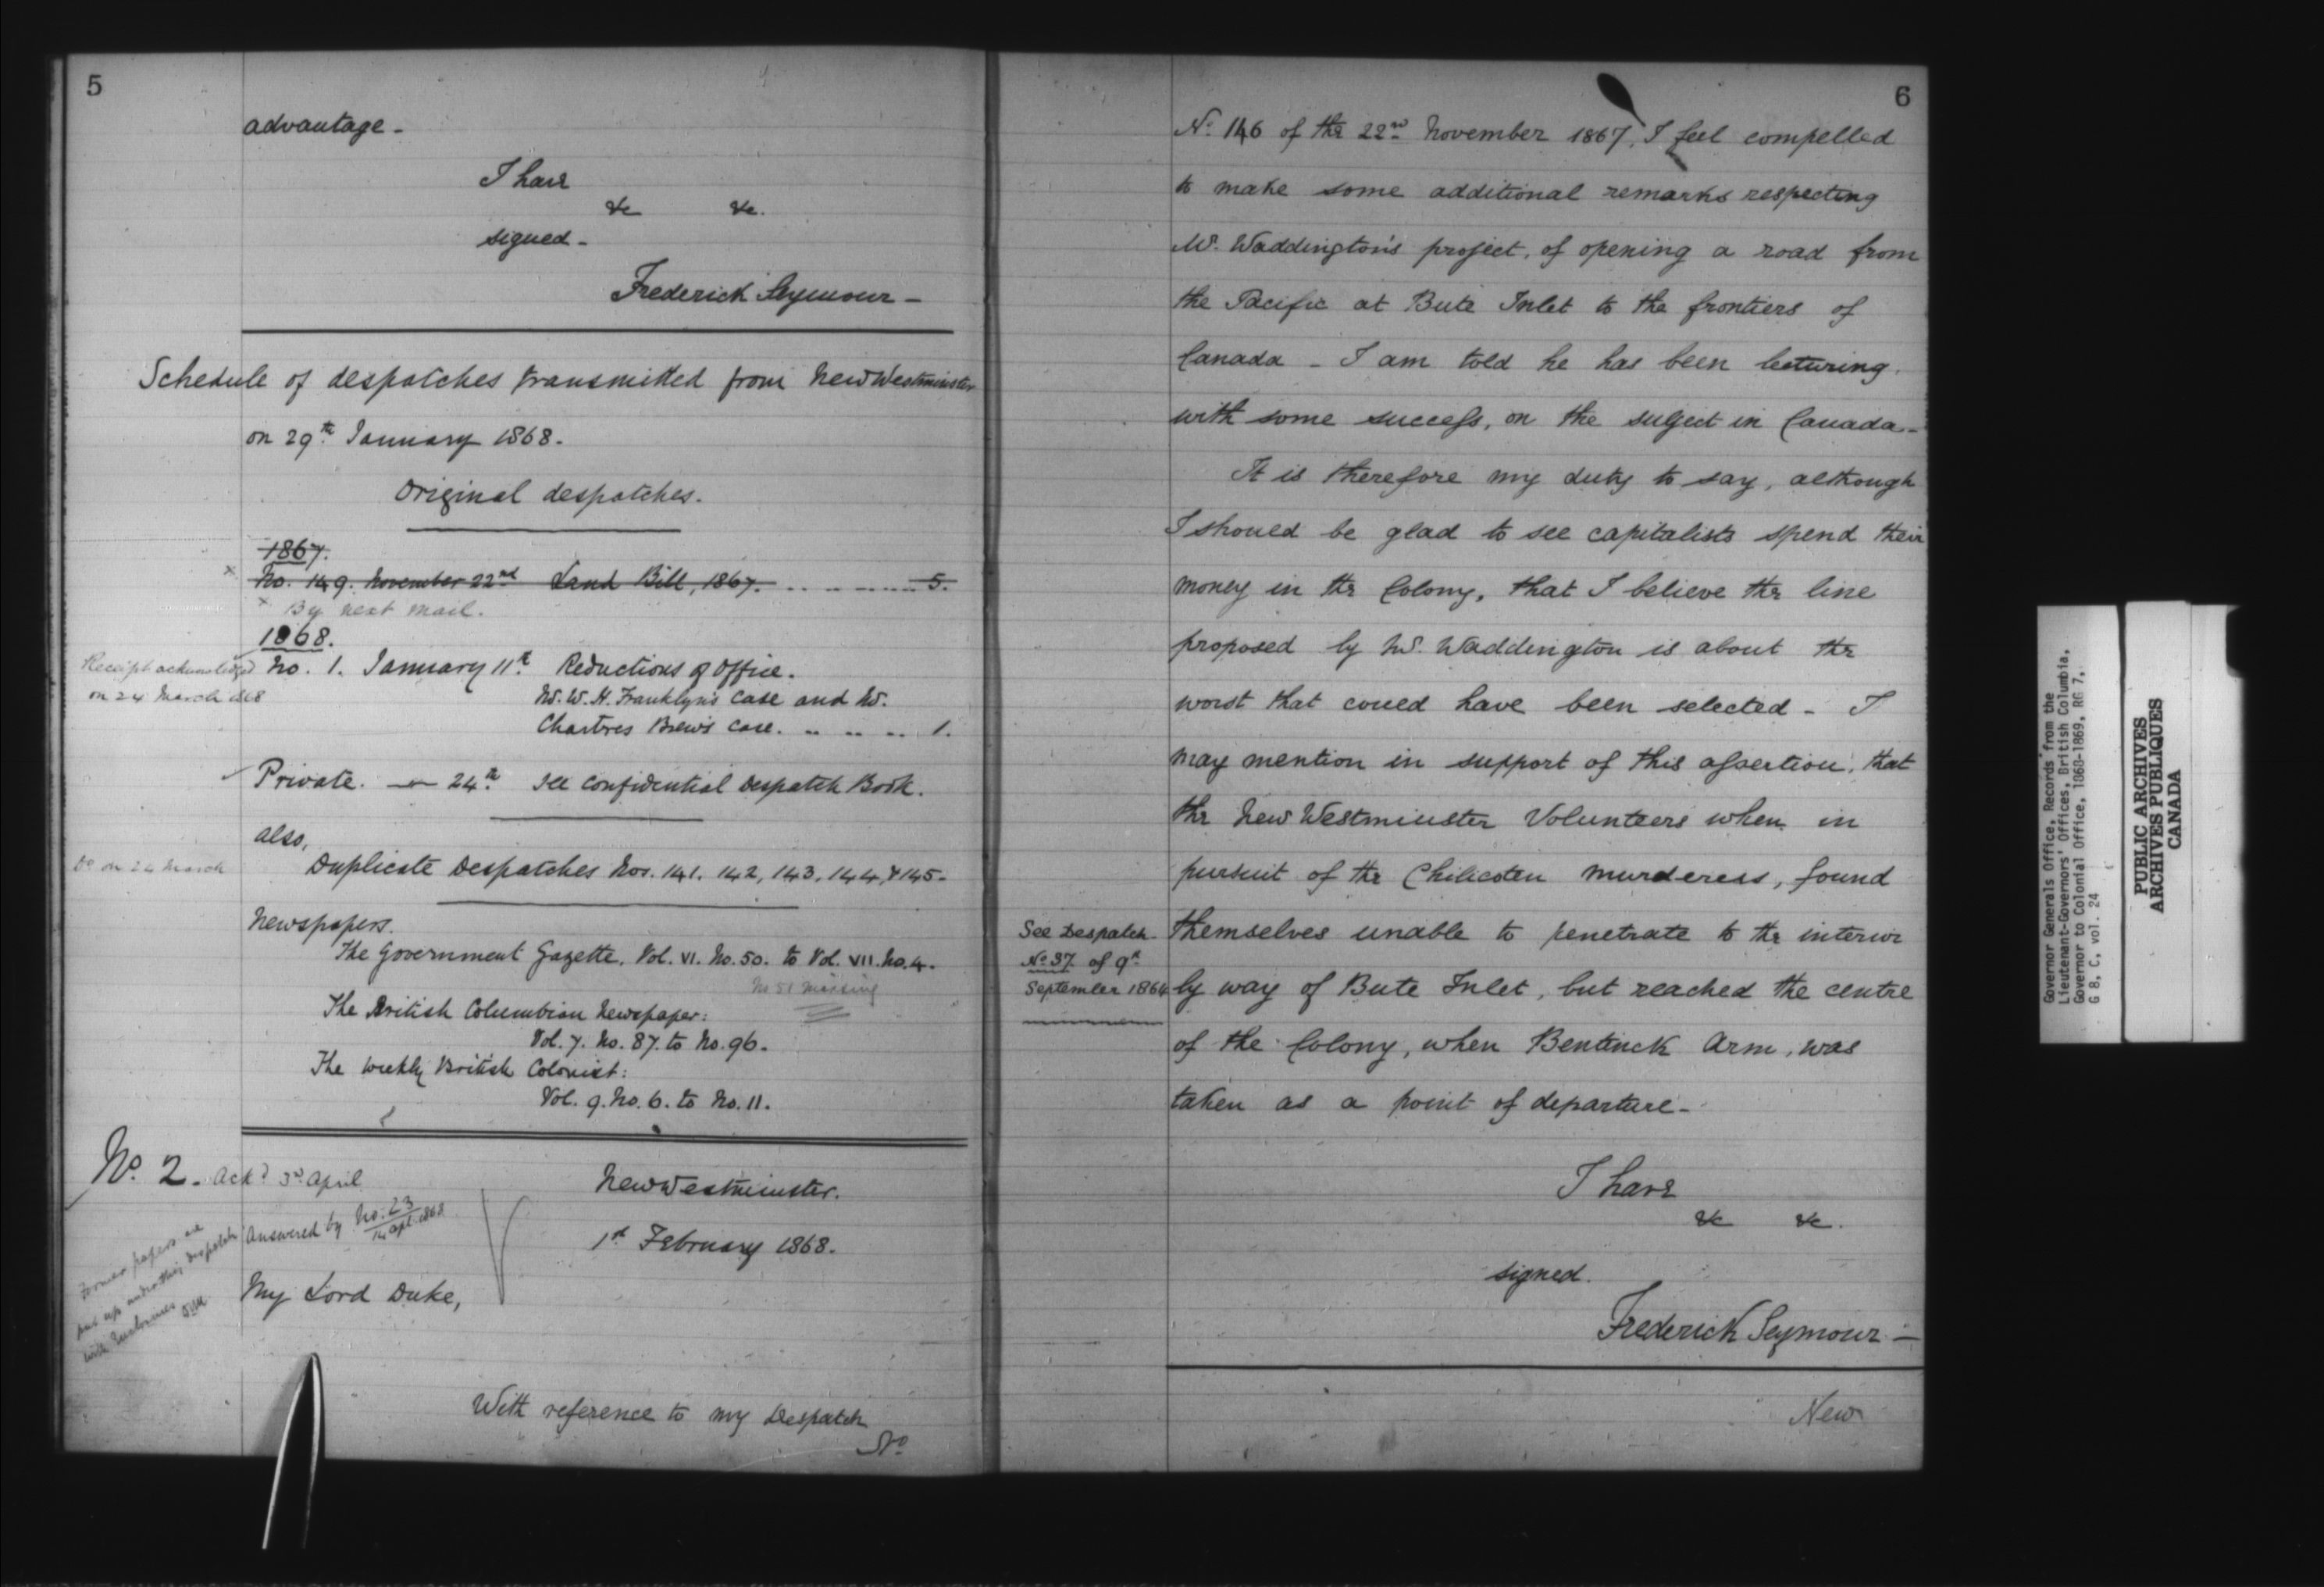 5
advantage -
I have
&c &c.
signed -
Frederick Seymour -
Schedule of despatches transmitted from New Westminster
on 29th January 1868.
Original despatches.
1867.
x No. 149. November 22nd Land Bill, 1867. .. .. .. .. 5.
x By next mail.
1868.
Receipt acknowledged
on 24 March 1868
No. 1. January 11th. Reductions of Office.
Mr. W. H. Franklyn's case and Mr.
Chartres Brew's case. .. .. .. 1.
Private. — 24th. See Confidential Despatch Book.
also,
Do on 24 March
Duplicate Despatches Nos. 141. 142, 143. 144, & 145 -
Newspapers.
The Government Gazette. Vol. VI. No. 50. to Vol. VII. No. 4.
No 51 missing
The British Columbian Newspaper:
Vol. 7. No. 87. to No. 96.
The weekly British Colonist:
Vol. 9. No. 6. to No. 11.
No. 2. Ackd 3rd April
Answered by No. 23
14 Apl. 1868
Former papers are
put up under this despatch
with Enclosures
New Westminster.
1st February 1868.
My Lord Duke,
With reference to my Despatch
No
6
No. 146 of the 22nd November 1867, I feel compelled
to make some additional remarks respecting
Mr. Waddington's project, of opening a road from
the Pacific at Bute Inlet to the frontiers of
Canada - I am told he has been lecturing
with some success, on the subject in Canada -
It is therefore my duty to say, although
I should be glad to see capitalists spend their
money in the Colony, that I believe the line
proposed by Mr. Waddington is about the
worst that could have been selected - I
may mention in support of this assertion, that
the New Westminster Volunteers when in
pursuit of the Chilicoten murderers, found
themselves unable to penetrate to the interior
by way of Bute Inlet, but reached the centre
of the Colony, when Bentinck Arm, was
taken as a point of departure -
See Despatch
No. 37. of 9th
September 1864
I have
&c &c.
signed.
Frederick Seymour -
New
Governor Generals Office, Records from the
Lieutenant-Governors' Offices, British Columbia,
Governor to Colonial Office, 1868-1869, RG 7,
G 8, C, vol. 24
PUBLIC ARCHIVES
ARCHIVES PUBLIQUES
CANADA